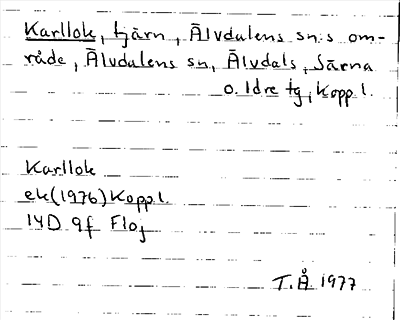 Karllok, tjärn, Älvdalens sn:s om-
råde, Älvdalens sn, Älvdals, Särna
o. Idre tg, Kopp l.
Karllok
ek(1976) Kopp l.
14D 9f Floj
T.Å. 1977